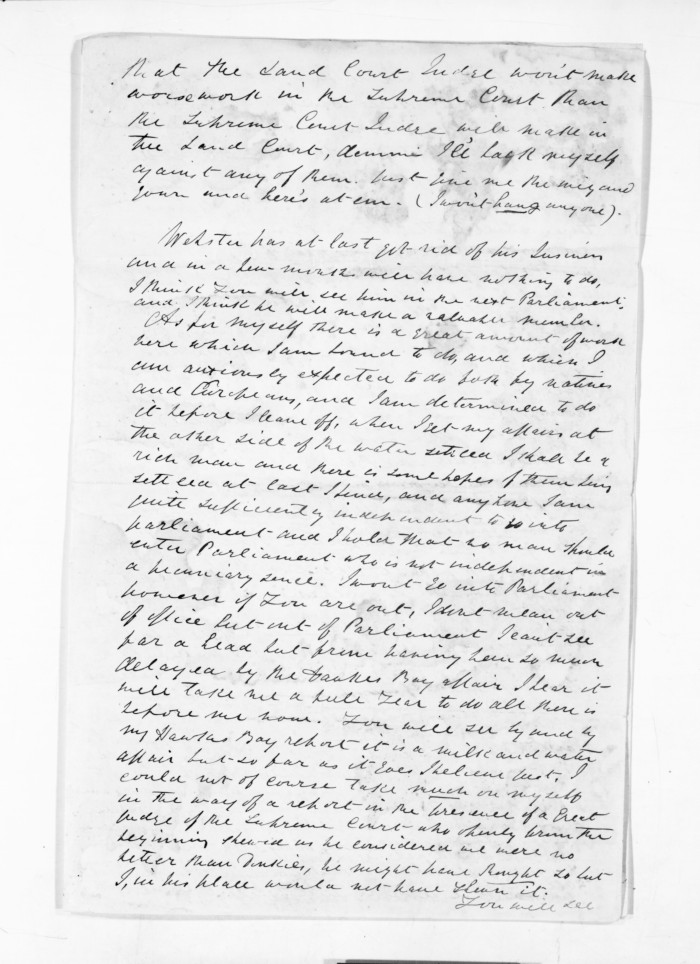 that the Land Court Judge won't make
worse work in the Supreme Court than
the Supreme Court Judge will make in
the Land Court, demme I'll back myself
against any of them. Just give me the wig and
gown and here's at em. (I won't hang anyone).
Webster has at last got rid of his business
and in a few months will have nothing to do,
I think you will see him in the next Parliament,
and I think he will make a valuable member.
As for myself there is a great amount of work
here which I am bound to do, and which I
am anxiously expected to do both by natives
and Europeans, and I am determined to do
it before I leave off, when I get my affairs at
the other side of the water settled I shall be a
rich man and there is some hopes of them being
settled at last I find, and anyhow I am
quite sufficiently independent to go into
parliament and I hold that no man should
enter Parliament who is not independent in
a pecuniary sence. I wont go into Parliament
however if you are out, I don't mean out
of office but out of Parliament I cant see
far a head but from having been so much
delayed by the Hawkes Bay affair I fear it
will take me a full year to do all there is
before me now. You will see by and by
my Hawkes Bay report it is a milk and water
affair but so far as it goes I believe just, I
could not of course take much on myself
in the way of a report in the presence of a great
Judge of the Supreme Court who openly from the
beginning shewed us he considered we were no
better than Dunkies, he might have thought so but
I, in his place would not have shewn it.
You will see